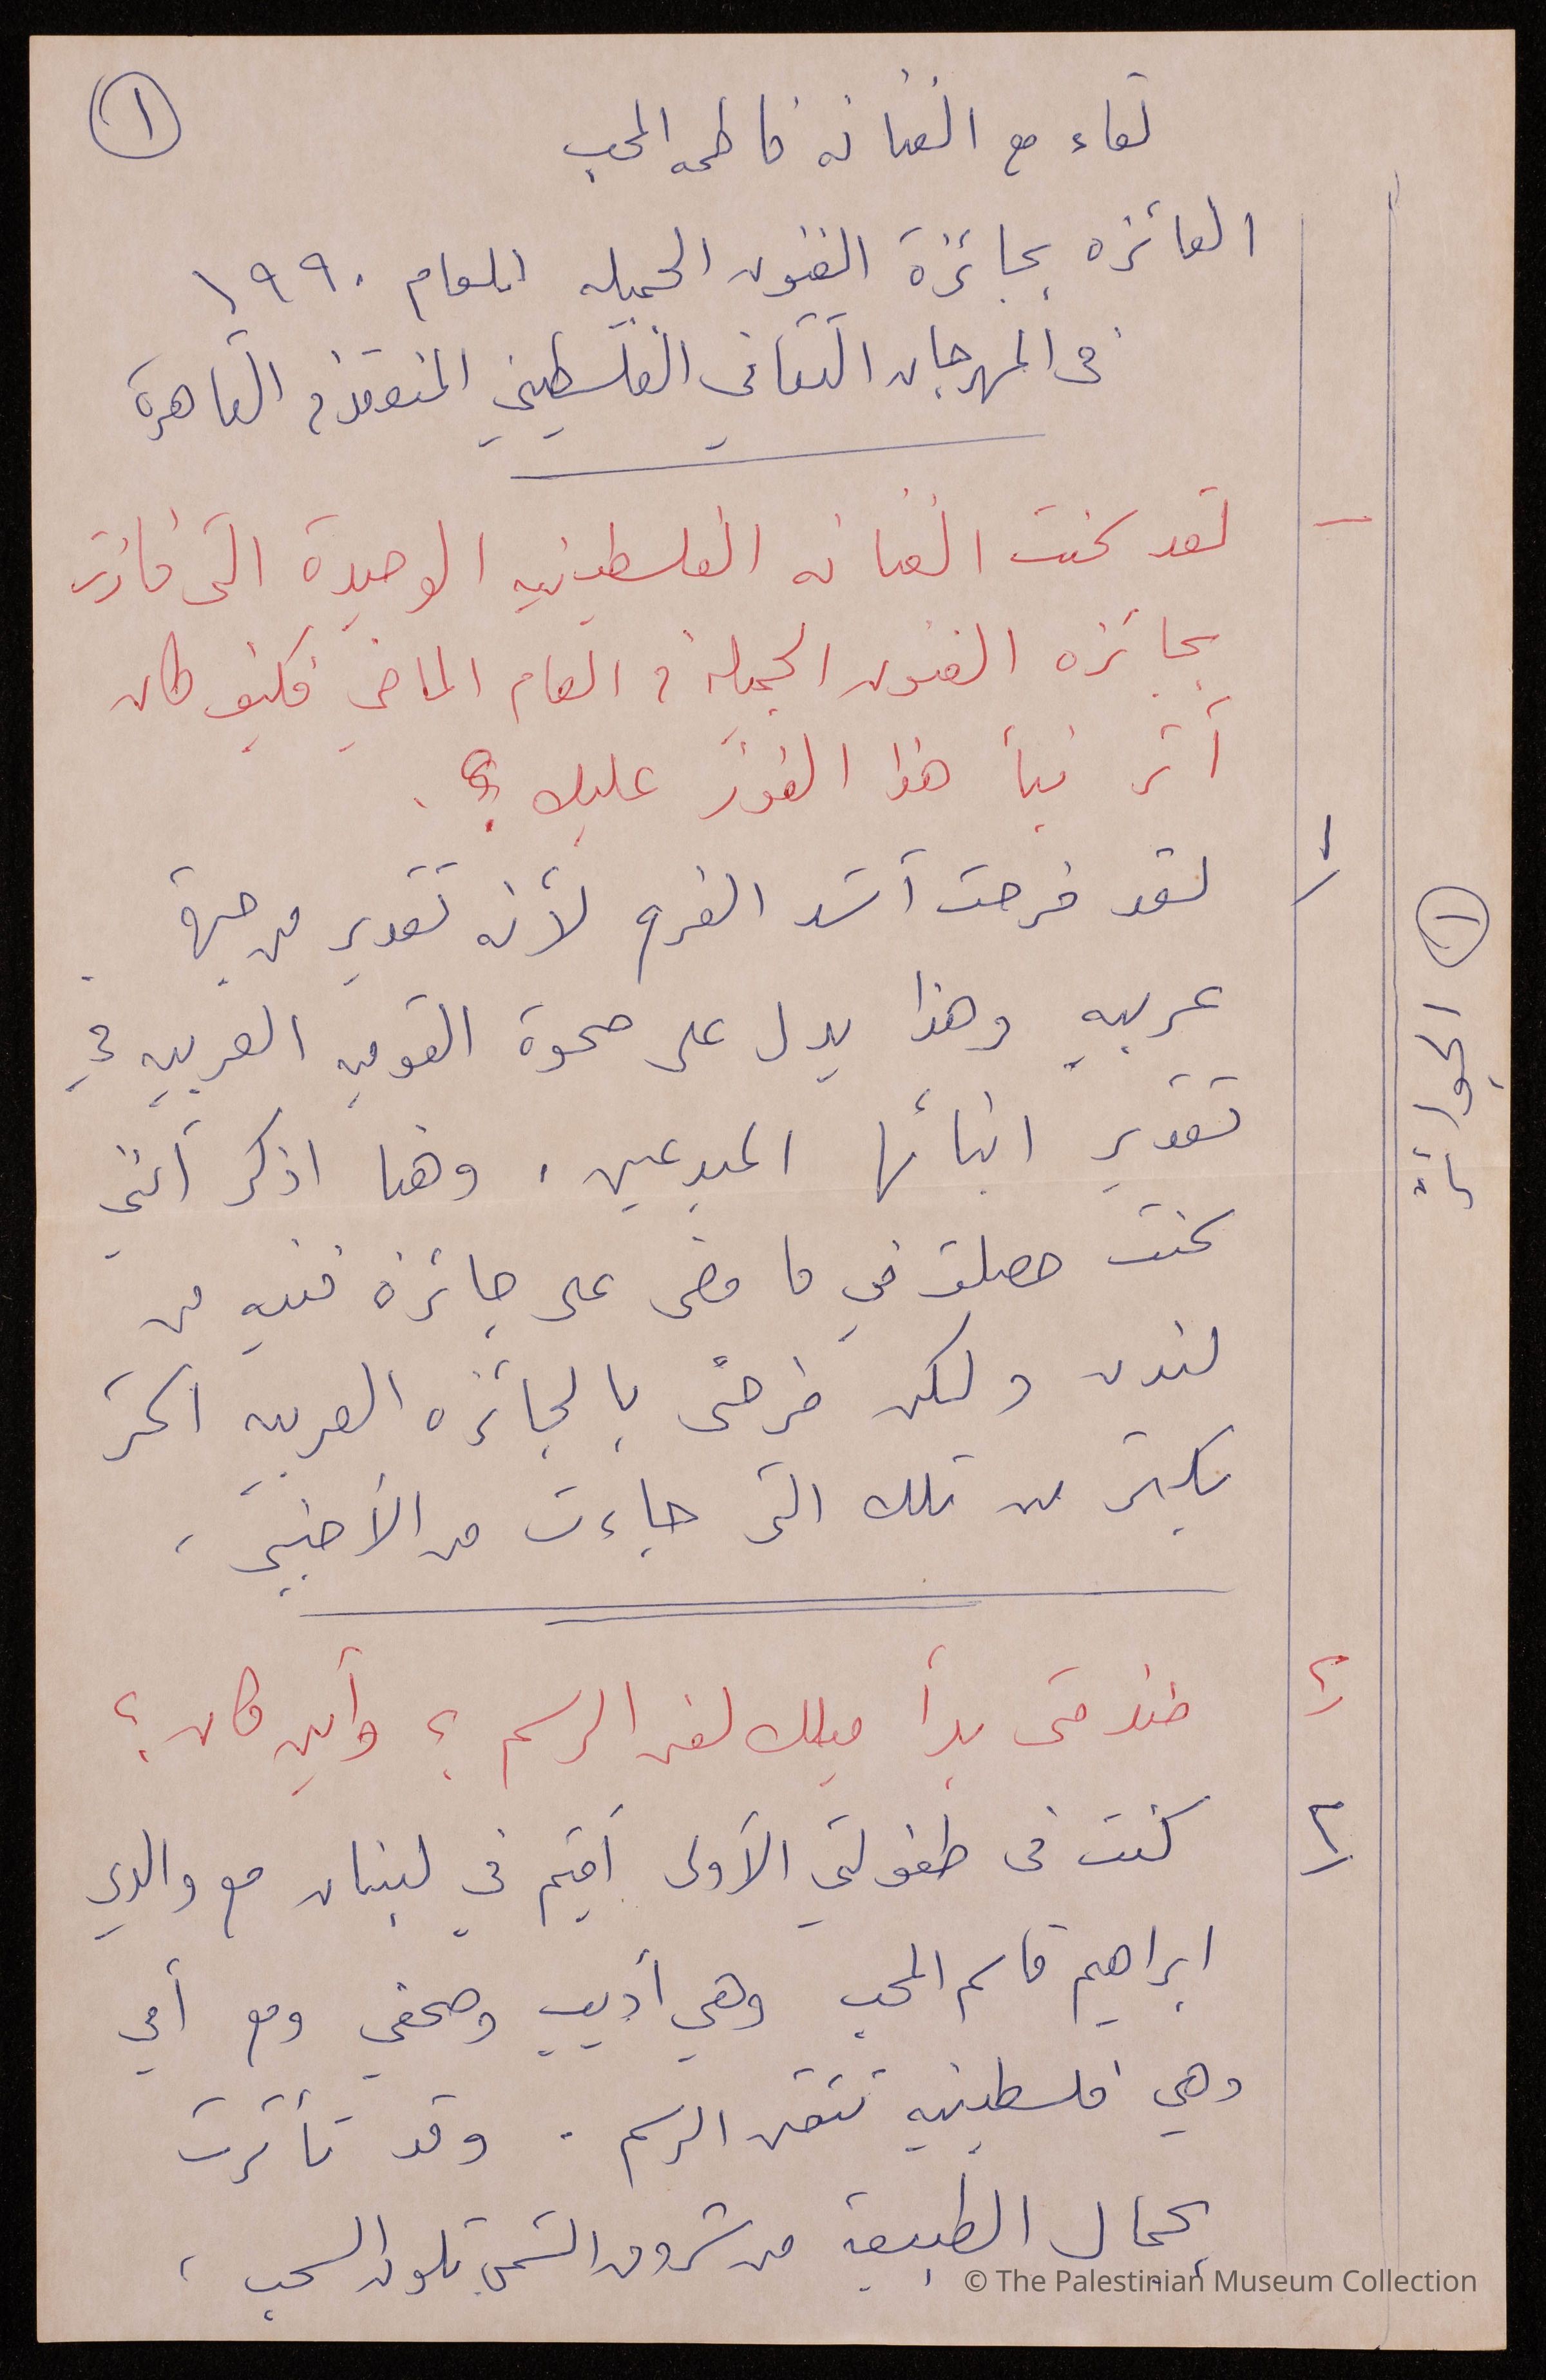 ١
لقاء مع الفنانه فاطمه المحب
الفائزه بجائزة الفنون الجميله للعام ١٩٩٠
فى المهرجان الثقافي الفلسطيني المنعقد في القاهرة
١ لقد كنت الفنانه الفلسطينيه الوحيدة التى فازت
بجائزه الفنون الجميلة في العام الماضي فكيف كان
أثر نبأ هذا الفوز عليك ؟ .
١ لقد فرحت أشد الفرح لأنه تقدير من جهة
عربيه وهذا يدل على صحوة القوميه العربيه في
تقدير ابنائها المبدعين ، وهنا اذكر أنني
كنت حصلت في ما مضى على جائزه فنيه من
لندن ولكن فرحتى بالجائزه العربيه اكثر
بكثير من تلك التى جاءت من الأجنبي ،
٢ منذ متى بدأ ميلك لفن الرسم ؟ وأين كان ؟
٢ كنت فى طفولتي الأولى أقيم في لبنان مع والدي
ابراهيم قاسم المحب وهي أديب وصحفي ومع أمي
وهي فلسطينيه تتقن الرسم . وقد تأثرت
بجمال الطبيعة من شروق الشمس تلون السحب ،
١ الجوائز
© The Palestinian Museum Collection